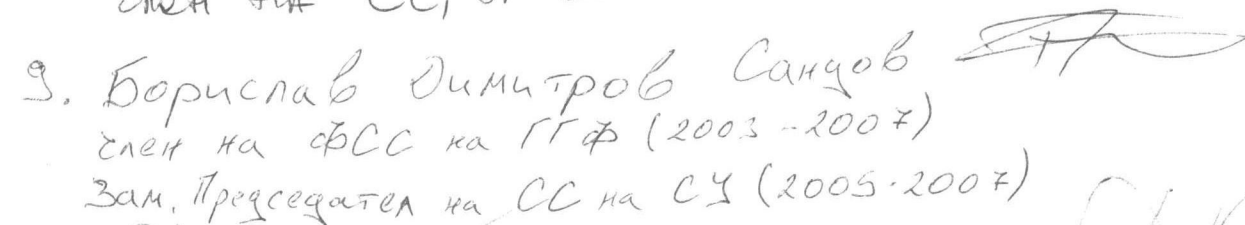 член на СС,
9. Борислав Димитров Сандов
член на ФСС на ГГФ (2003-2007)
Зам. Председател на СС на СУ (2005-2007)